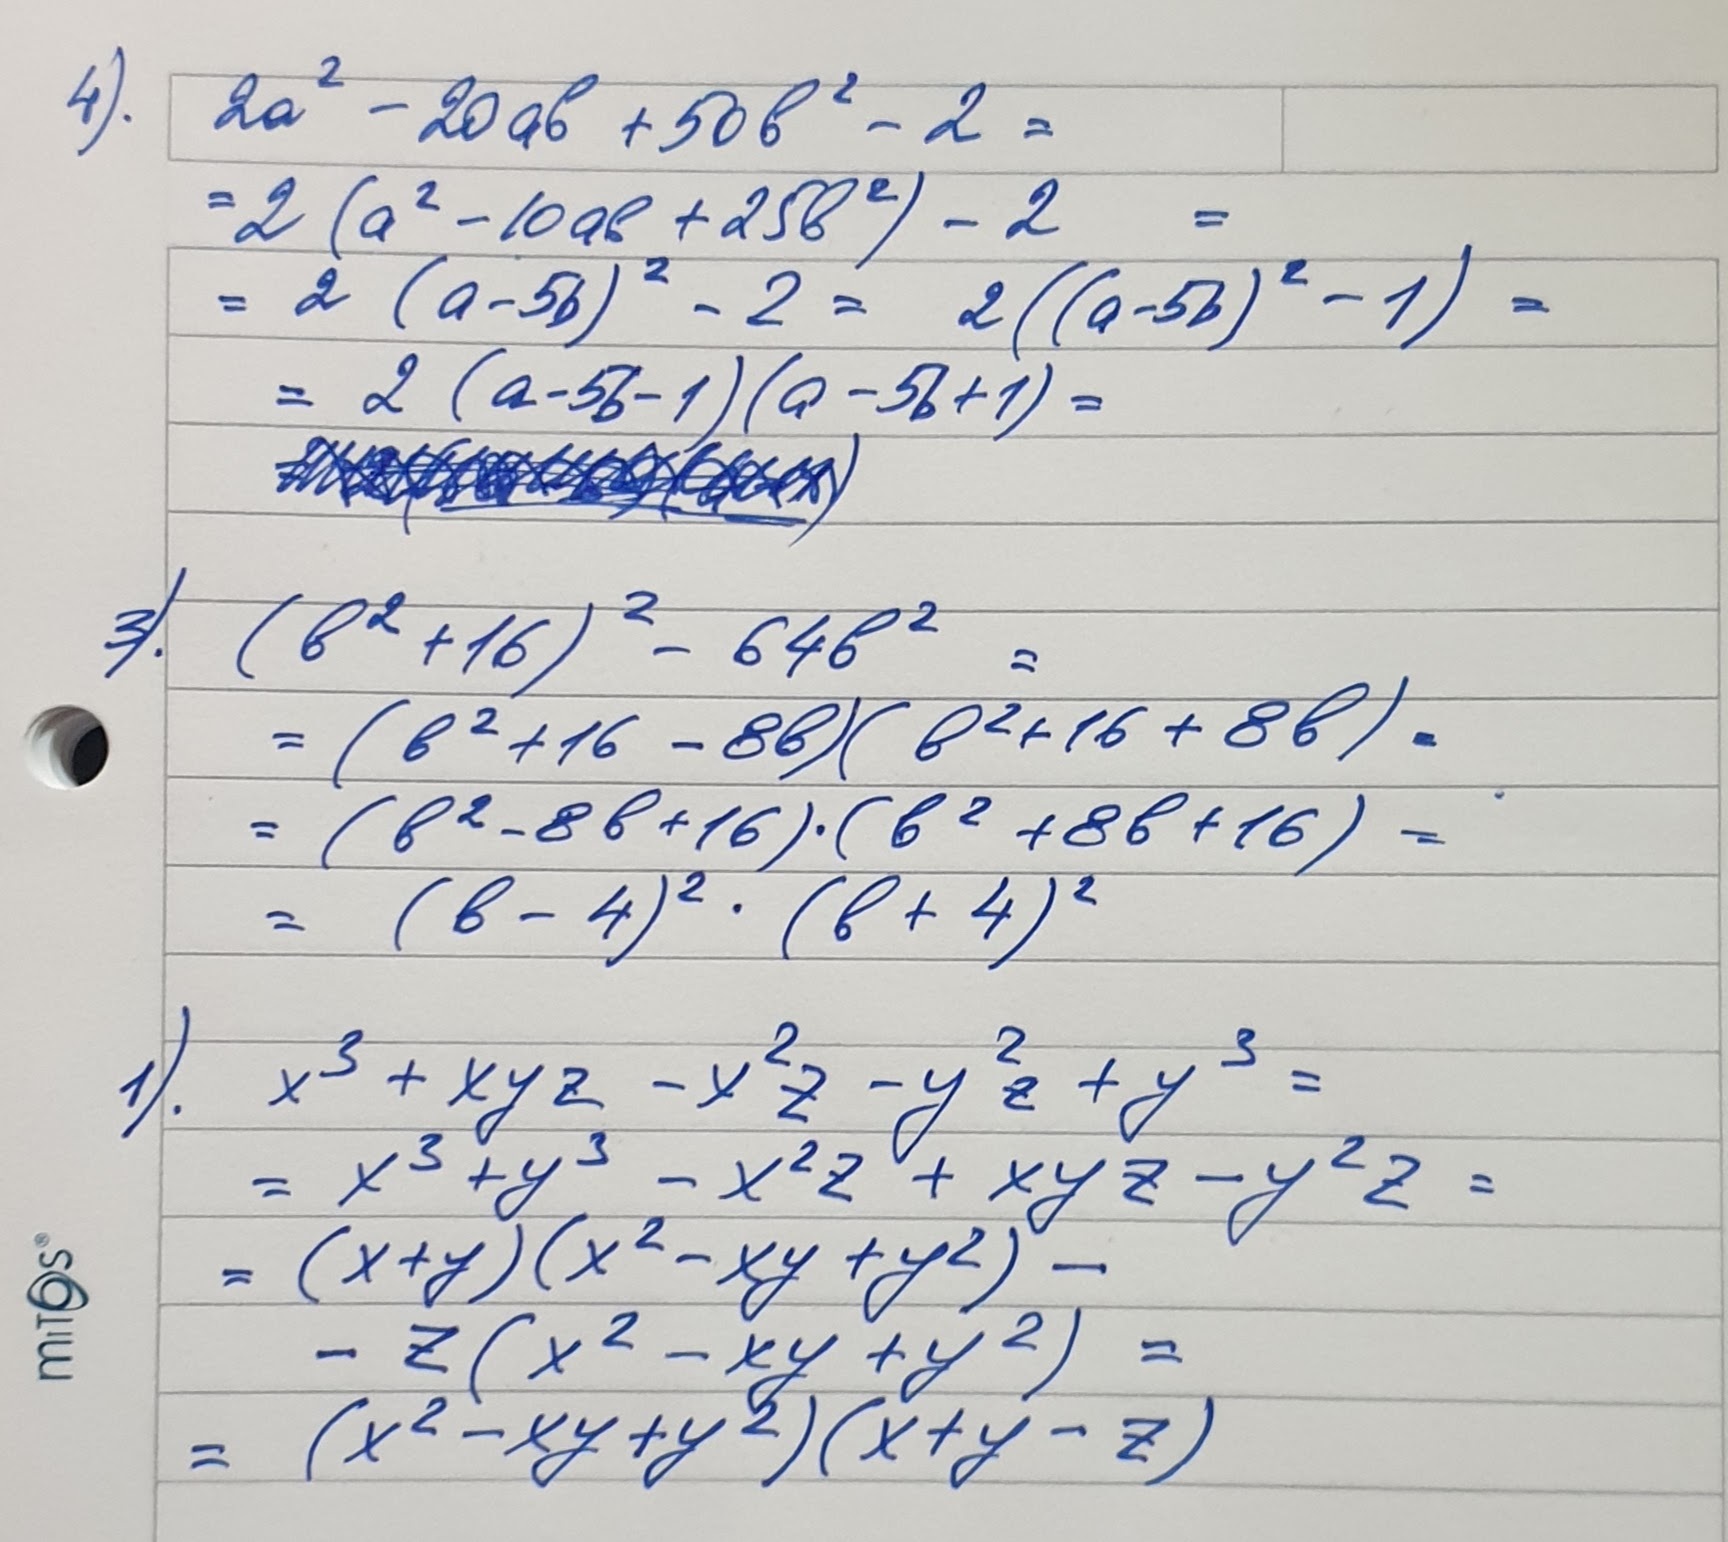 4). 2a² - 20ab + 50b² - 2 =
= 2 (a² - 10ab + 25b²) - 2 =
= 2 (a - 5b)² - 2 = 2((a - 5b)² - 1) =
= 2 (a - 5b - 1)(a - 5b + 1) =
3). (b² + 16)² - 64b² =
= (b² + 16 - 8b)(b² + 16 + 8b) =
= (b² - 8b + 16)·(b² + 8b + 16) =
= (b - 4)² · (b + 4)²
1). x³ + xyz - x²z - y²z + y³ =
= x³ + y³ - x²z + xyz - y²z =
= (x+y)(x² - xy + y²) -
- z(x² - xy + y²) =
= (x² - xy + y²)(x + y - z)
mitos®